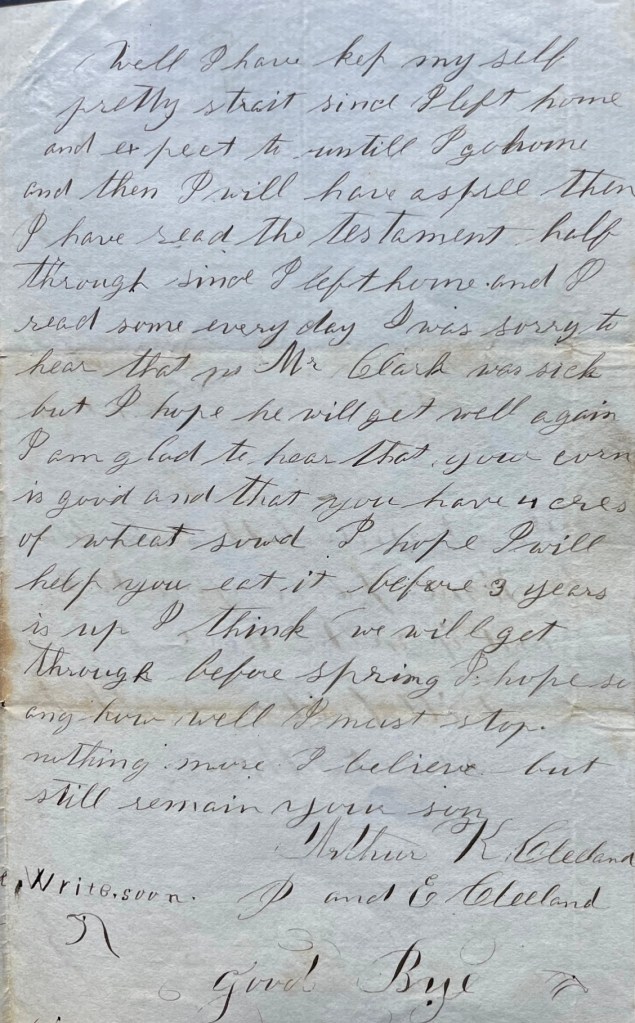 Well I have kep my self
pretty strait since I left home
and expect to untill I go home
and then I will have a spell then
I have read the testament half
through since I left home. and I
read some every day I was sorry to
hear that Mr Clark was sick
but I hope he will get well again
I am glad to hear that your corn
is good and that you have 4 cres
of wheat sowd I hope I will
help you eat it before 3 years
is up I think we will get
through before spring I hope so
any how well I must stop.
nothing more I believe but
still remain your son
Arthur K. Cleeland
Write soon. J and E Cleeland
Good Bye